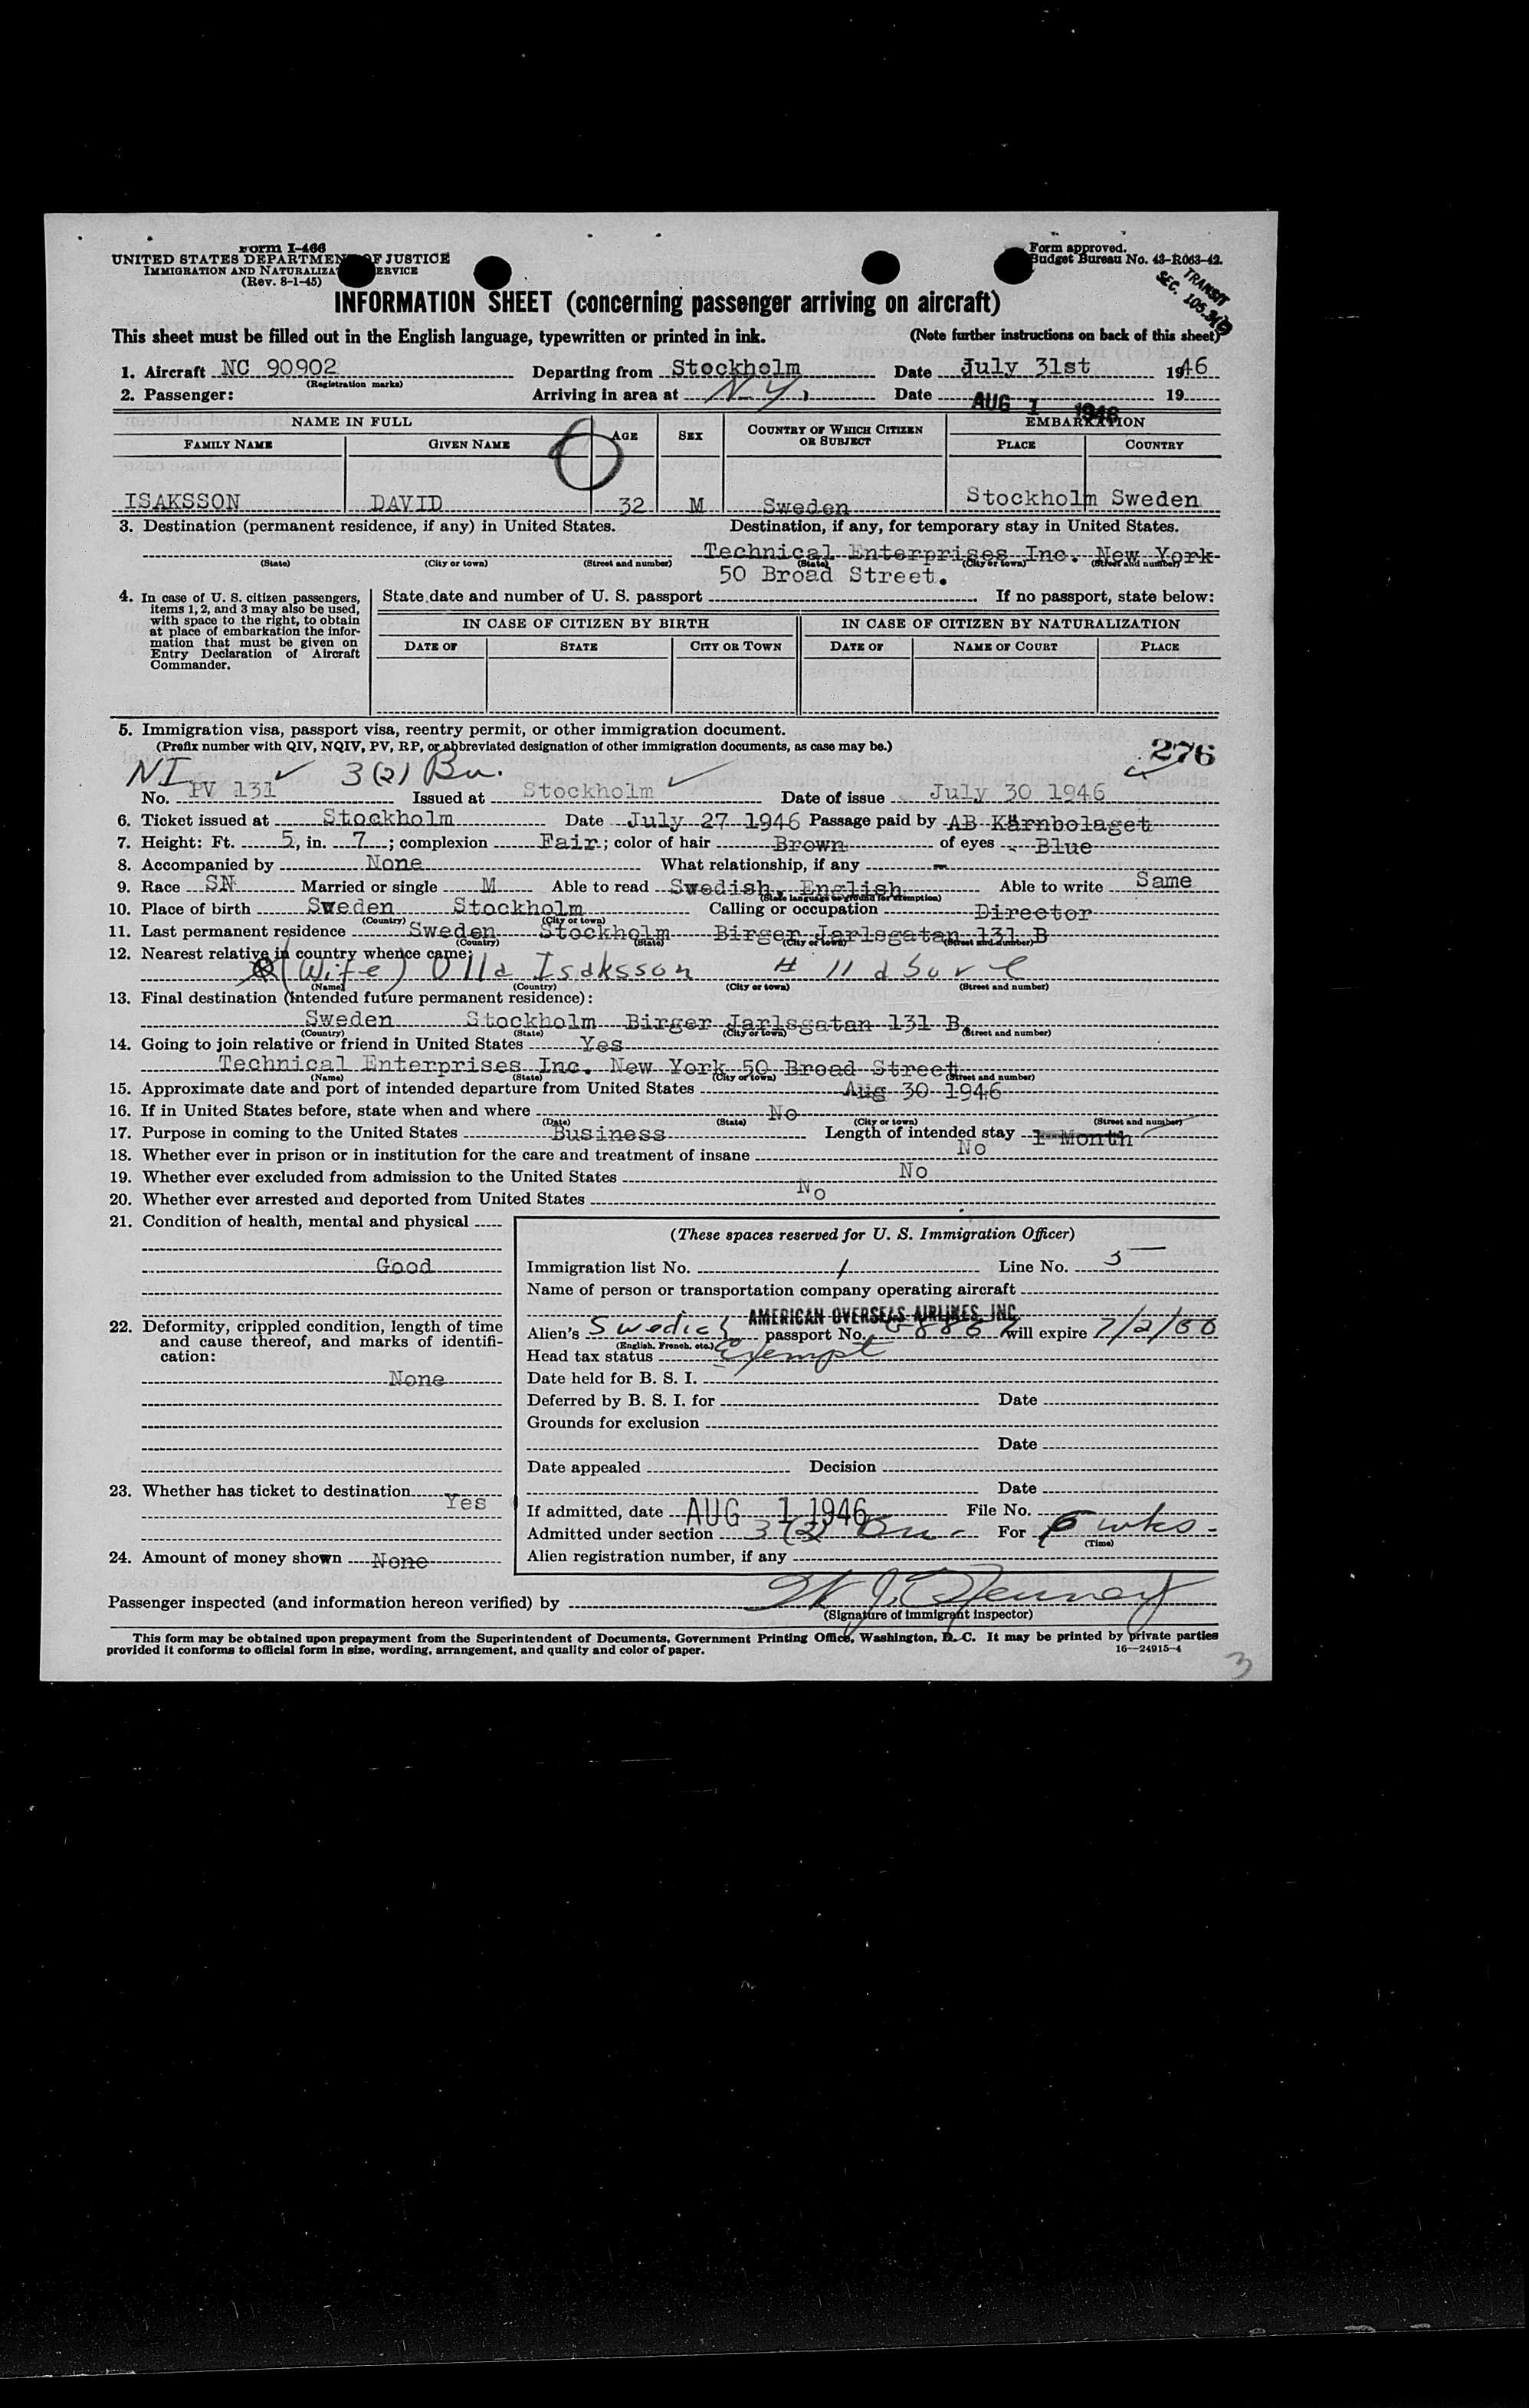 Form I-466
UNITED STATES DEPARTMENT OF JUSTICE
IMMIGRATION AND NATURALIZATION SERVICE
(Rev. 8-1-45)
Form approved.
Budget Bureau No. 43-R063-42.
TRANSIT
SEC. 105.3(e)
INFORMATION SHEET (concerning passenger arriving on aircraft)
This sheet must be filled out in the English language, typewritten or printed in ink. (Note further instructions on back of this sheet)
1. Aircraft NC 90902 Departing from Stockholm Date July 31st 1946
(Registration marks)
2. Passenger: Arriving in area at N.Y. Date AUG 1 1946 19
NAME IN FULL AGE SEX COUNTRY OF WHICH CITIZEN OR SUBJECT EMBARKATION
FAMILY NAME GIVEN NAME PLACE COUNTRY
ISAKSSON DAVID 32 M Sweden Stockholm Sweden
3. Destination (permanent residence, if any) in United States. Destination, if any, for temporary stay in United States.
Technical Enterprises Inc. New York
(State) (City or town) (Street and number) (State) (City or town) (Street and number)
50 Broad Street.
4. In case of U. S. citizen passengers, items 1, 2, and 3 may also be used, with space to the right, to obtain at place of embarkation the information that must be given on Entry Declaration of Aircraft Commander.
State date and number of U. S. passport If no passport, state below:
IN CASE OF CITIZEN BY BIRTH IN CASE OF CITIZEN BY NATURALIZATION
DATE OF STATE CITY OR TOWN DATE OF NAME OF COURT PLACE
5. Immigration visa, passport visa, reentry permit, or other immigration document.
(Prefix number with QIV, NQIV, PV, RP, or abbreviated designation of other immigration documents, as case may be.)
276
NI 3(2) Bu.
No. PV 131 Issued at Stockholm Date of issue July 30 1946
6. Ticket issued at Stockholm Date July 27 1946 Passage paid by AB Kärnbolaget
7. Height: Ft. 5, in. 7; complexion Fair; color of hair Brown of eyes Blue
8. Accompanied by None What relationship, if any -
9. Race SN Married or single M Able to read Swedish, English Able to write Same
(State language or ground for exemption)
10. Place of birth Sweden Stockholm Calling or occupation Director
(Country) (City or town)
11. Last permanent residence Sweden Stockholm Birger Jarlsgatan 131 B
(Country) (State) (City or town) (Street and number)
12. Nearest relative in country whence came:
(Wife) Ulla Isaksson
(Name) (Country) (City or town) (Street and number)
13. Final destination (intended future permanent residence):
Sweden Stockholm Birger Jarlsgatan 131 B.
(Country) (State) (City or town) (Street and number)
14. Going to join relative or friend in United States Yes
Technical Enterprises Inc. New York 50 Broad Street
(Name) (State) (City or town) (Street and number)
15. Approximate date and port of intended departure from United States Aug 30 1946
16. If in United States before, state when and where No
(Date) (State) (City or town) (Street and number)
17. Purpose in coming to the United States Business Length of intended stay 1 Month
18. Whether ever in prison or in institution for the care and treatment of insane No
19. Whether ever excluded from admission to the United States No
20. Whether ever arrested and deported from United States No
21. Condition of health, mental and physical
Good
22. Deformity, crippled condition, length of time and cause thereof, and marks of identification:
None
23. Whether has ticket to destination Yes
24. Amount of money shown None
(These spaces reserved for U. S. Immigration Officer)
Immigration list No. 1 Line No. 3
Name of person or transportation company operating aircraft
AMERICAN OVERSEAS AIRLINES, INC
Alien's Swedich passport No. will expire
(English, French, etc.)
Head tax status Exempt
Date held for B. S. I.
Deferred by B. S. I. for Date
Grounds for exclusion
Date
Date appealed Decision
Date
If admitted, date AUG 1 1946 File No.
Admitted under section 3(2) Bu. For 6 wks.
(Time)
Alien registration number, if any
Passenger inspected (and information hereon verified) by
(Signature of immigrant inspector)
This form may be obtained upon prepayment from the Superintendent of Documents, Government Printing Office, Washington, D. C. It may be printed by private parties
provided it conforms to official form in size, wording, arrangement, and quality and color of paper. 16—24915-4
3